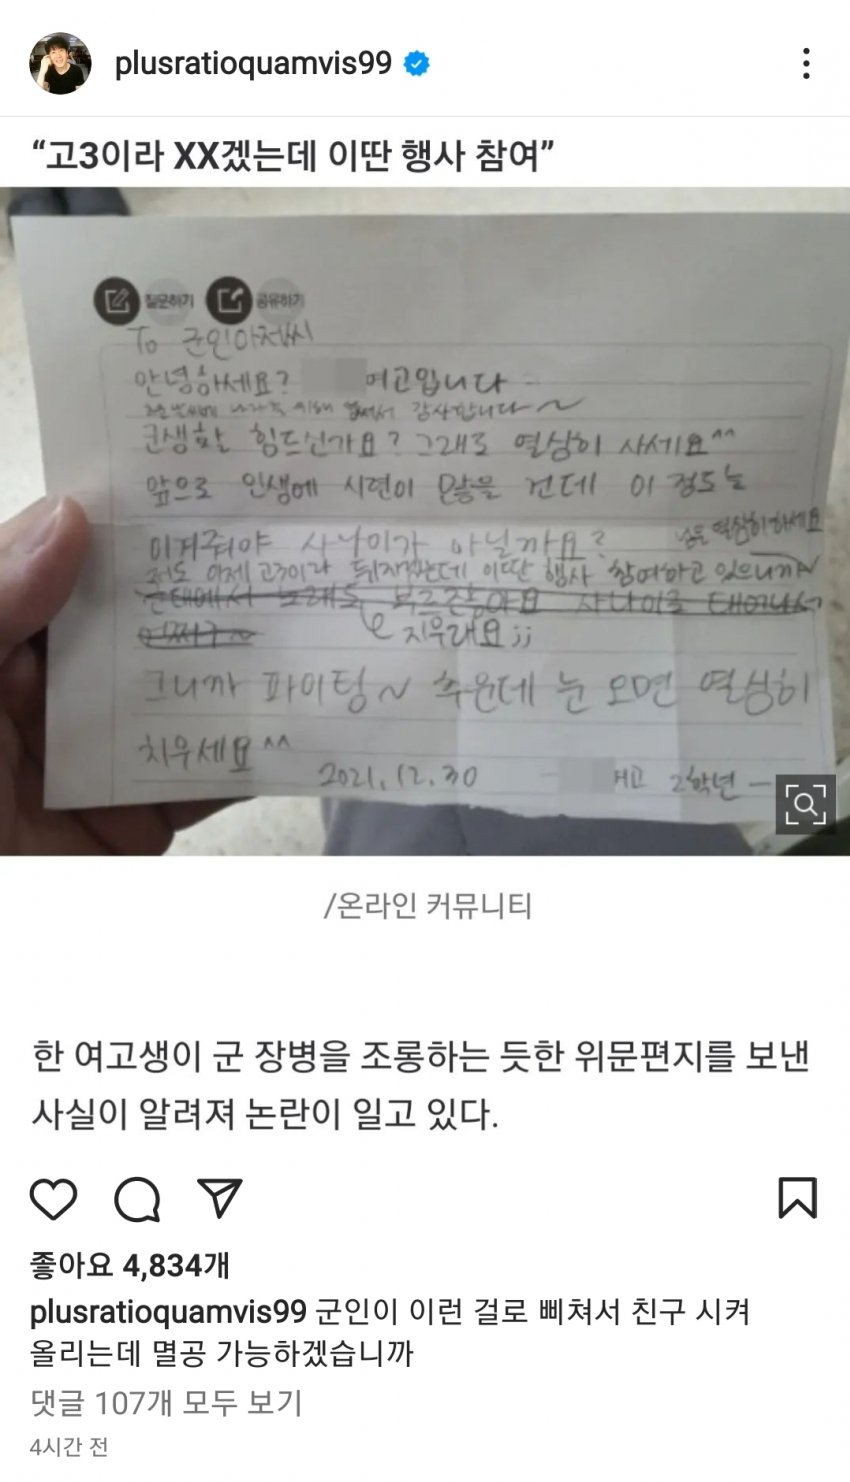 plusratioquamvis99
“고3이라 XX겠는데 이딴 행사 참여”
질문하기 공유하기
To 군인아저씨
안녕하세요? 여고입니다
감사합니다~
군생활 힘드신가요? 그래도 열심히 사세요^^
앞으로 인생에 시련이 많을 건데 이 정도는
이겨줘야 사나이가 아닐까요?
저도 이제 고3이라 뒤지겠는데 이딴 행사 참여하고 있으니까~
님은 열심히 하세요
군대에서 노래도 부르잖아요 사나이로 태어나서
지우래요;;
그니까 파이팅~ 추운데 눈 오면 열심히
치우세요^^
2021.12.30 - 여고 2학년 -
/온라인 커뮤니티
한 여고생이 군 장병을 조롱하는 듯한 위문편지를 보낸
사실이 알려져 논란이 일고 있다.
좋아요 4,834개
plusratioquamvis99 군인이 이런 걸로 삐쳐서 친구 시켜
올리는데 멸공 가능하겠습니까
댓글 107개 모두 보기
4시간 전